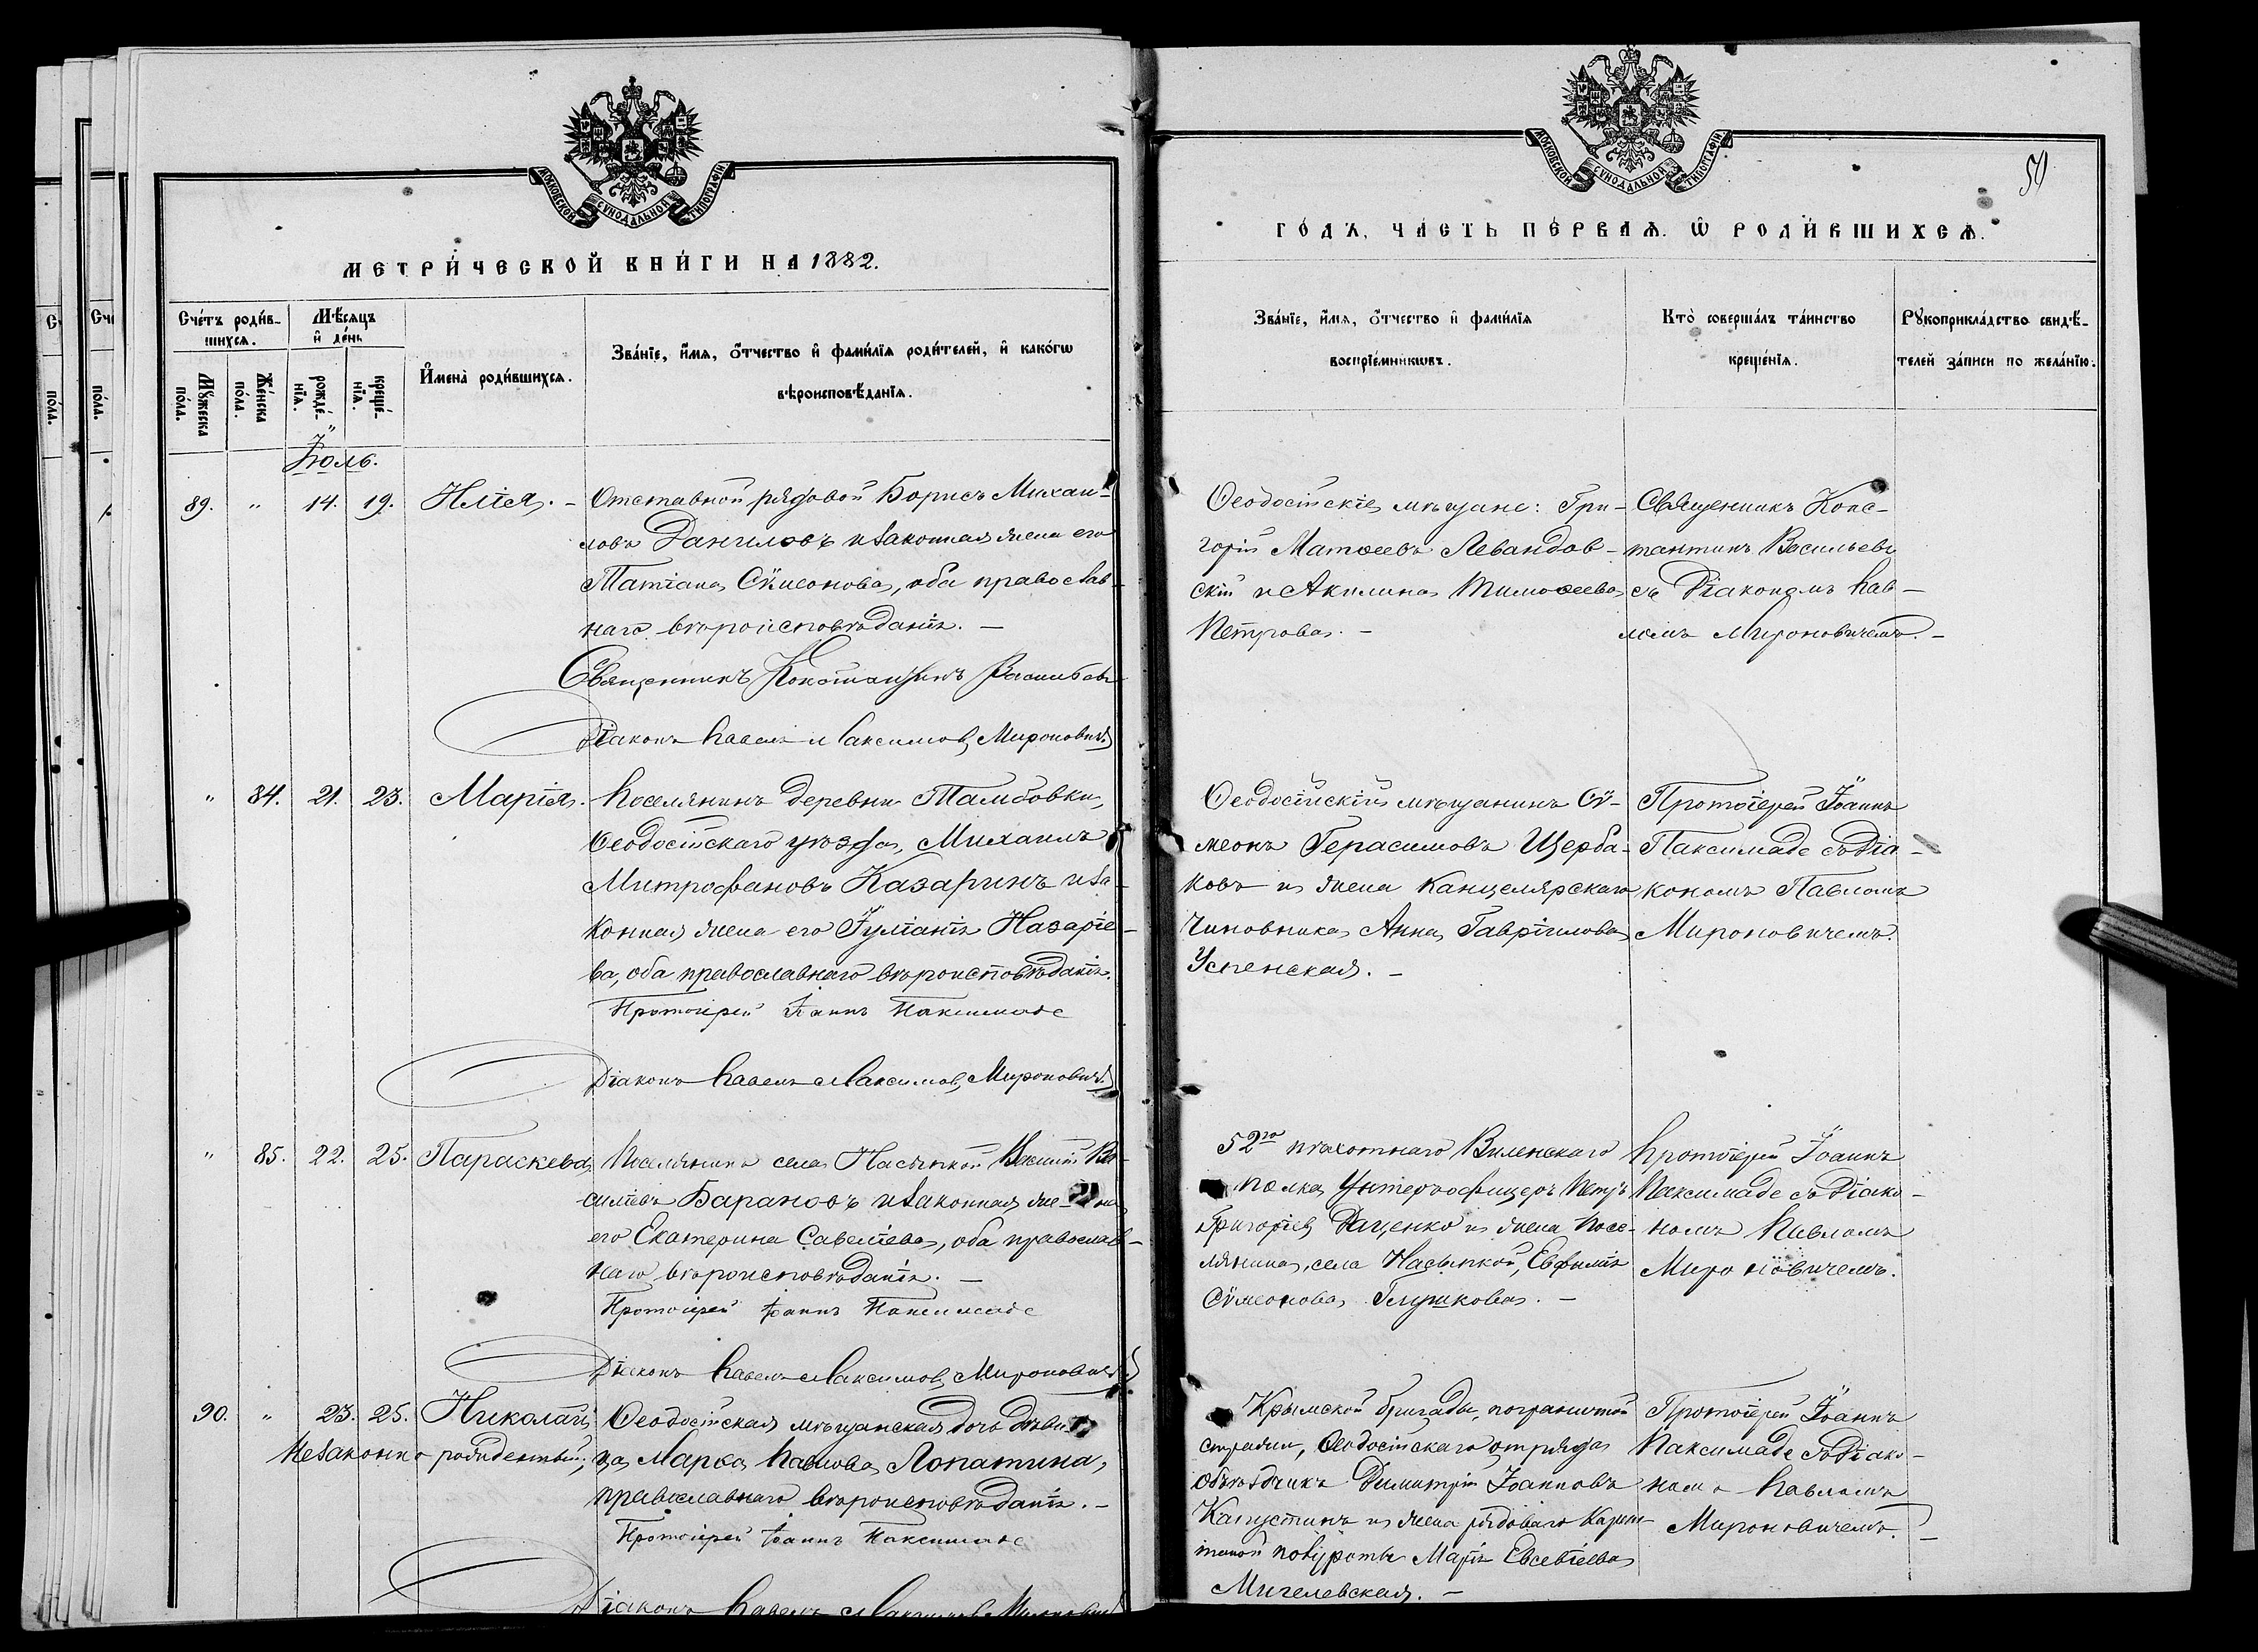 МОСКОВСКОЙ СѴНОДАЛЬНОЙ ТИПОГРАФІИ
МЕТРИ́ЧЕСКОЙ КНИ́ГИ НА 1882.
Сче́тъ роди́в-
шихсѧ.
Мѣ́сѧцъ
и҆ де́нь
Мꙋ́жеска
по́ла.
Же́нска
по́ла.
рожде́-
нїѧ.
креще́-
нїѧ.
И҆мена̀ роди́вшихсѧ.
Зва́нїе, и҆́мѧ, ѻ҆́тчество и҆ фами́лїѧ роди́телей, и҆ како́гѡ
вѣроисповѣ́данїѧ.
Іюль.
89. " 14. 19. Илія. - Отставной рядовой Борисъ Михаи-
ловъ Даниловъ и законная жена его
Татіана Сѵмеонова, оба православ-
наго вѣроисповѣданія. —
Священникъ Константинъ Васильевъ
Діаконъ Павелъ Максимовъ Мироновичъ
" 84. 21. 23. Марія. Поселянинъ деревни Тамбовки,
Ѳеодосійскаго уѣзда, Михаилъ
Митрофановъ Казаринъ и за-
конная жена его Іуліанія Назаріе-
ва, оба православнаго вѣроисповѣданія.
Протоіерей Іоаннъ Паксимаде
Діаконъ Павелъ Максимовъ Мироновичъ
" 85. 22. 25. Параскева Поселянинъ села Насыпкой Василій Ва-
силіевъ Барановъ и законная жена
его Екатерина Савеліева, оба православ-
наго вѣроисповѣданія. —
Протоіерей Іоаннъ Паксимаде
Діаконъ Павелъ Максимовъ Мироновичъ
90. " 23. 25. Николай, Ѳеодосійская мѣщанская дочь дѣви-
незаконно рожденный; ца Марѳа Павлова Лопатина,
православнаго вѣроисповѣданія. -
Протоіерей Іоаннъ Паксимаде
Діаконъ Павелъ Максимовъ Мироновичъ
МОСКОВСКОЙ СѴНОДАЛЬНОЙ ТИПОГРАФІИ
59
ГО́ДЪ, ЧА́СТЬ ПЕ́РВАѦ. Ѡ҆ РОДИ́ВШИХСѦ.
Зва́нїе, и҆́мѧ, ѻ҆́тчество и҆ фами́лїѧ
воспрїе́мникѡвъ.
Кто̀ соверша́лъ та́инство
креще́нїѧ.
Рꙋкоприкла́дство свидѣ́-
телей за́писи по жела́нїю.
Ѳеодосійскіе мѣщане: Гри-
горій Матѳеевъ Левандов-
скій и Акилина Тимоѳеева
Петрова. —
Священникъ Конс-
тантинъ Васильевъ
съ Діакономъ Пав-
ломъ Мироновичемъ. —
Ѳеодосійскій мѣщанинъ Сѵ-
меонъ Герасимовъ Щерба-
ковъ и жена Канцелярскаго
Чиновника Анна Гавріилова
Успенская. —
Протоіерей Іоаннъ
Паксимаде съ Діа-
кономъ Павломъ
Мироновичемъ.
52го пѣхотнаго Виленскаго
полка Унтеръ-офицеръ Петръ
Григоріевъ Даценко и жена посе-
лянина села Насыпкой, Евфимія
Сѵмеонова Глушкова. —
Протоіерей Іоаннъ
Паксимаде съ Діако-
номъ Павломъ
Мироновичемъ.
Крымской бригады, пограничной
стражи, Ѳеодосійскаго отряда
объѣздчикъ Димитрій Іоанновъ
Капустинъ и жена рядоваго Каран-
тинной полуроты Марія Евсевіева
Мигелевская. —
Протоіерей Іоаннъ
Паксимаде съ Діако-
номъ Павломъ
Мироновичемъ. —